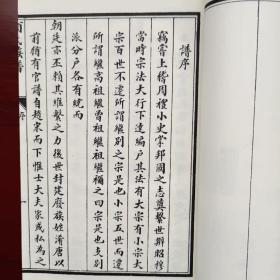 譜序
竊嘗上稽周禮小史掌邦國之志奠繫世辨昭穆
當時宗法大行下逮編户其法有大宗有小宗大
宗百世不遷所謂繼别之宗是也小宗五世而遷
所謂繼高祖繼曾祖繼祖繼禰之四宗是也支别
派分户各有統而
朝廷亦丕賴其維繫之力後世封建廢族姓淆唐以
前猶有官譜自趙宋而下惟士大夫家或私為之
氏族譜
序